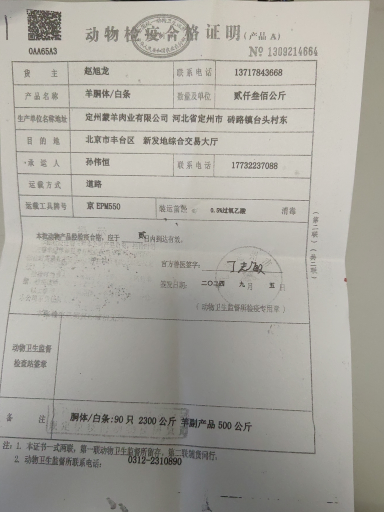 动物检疫合格证明(产品A)
0AA65A3
№ 1309214664
货主 赵旭龙 联系电话 13717843668
产品名称 羊胴体/白条 数量及单位 贰仟叁佰公斤
生产单位名称地址 定州蒙羊肉业有限公司 河北省定州市 砖路镇台头村东
目的地 北京市丰台区 新发地综合交易大厅
承运人 孙伟恒 联系电话 17732237088
运载方式 道路
运载工具牌号 京EPM550 装运前经 0.5%过氧乙酸 消毒
本批动物产品经检疫合格,应于 贰 日内到达有效。
官方兽医签字:
签发日期:二〇二四 九 五
(动物卫生监督所检疫专用章)
动物卫生监督
检查站签章
备注 胴体/白条:90 只 2300 公斤 羊副产品 500 公斤
注:1. 本证书一式两联,第一联动物卫生监督所留存,第二联随货同行。
2. 动物卫生监督所联系电话: 0312-2310890